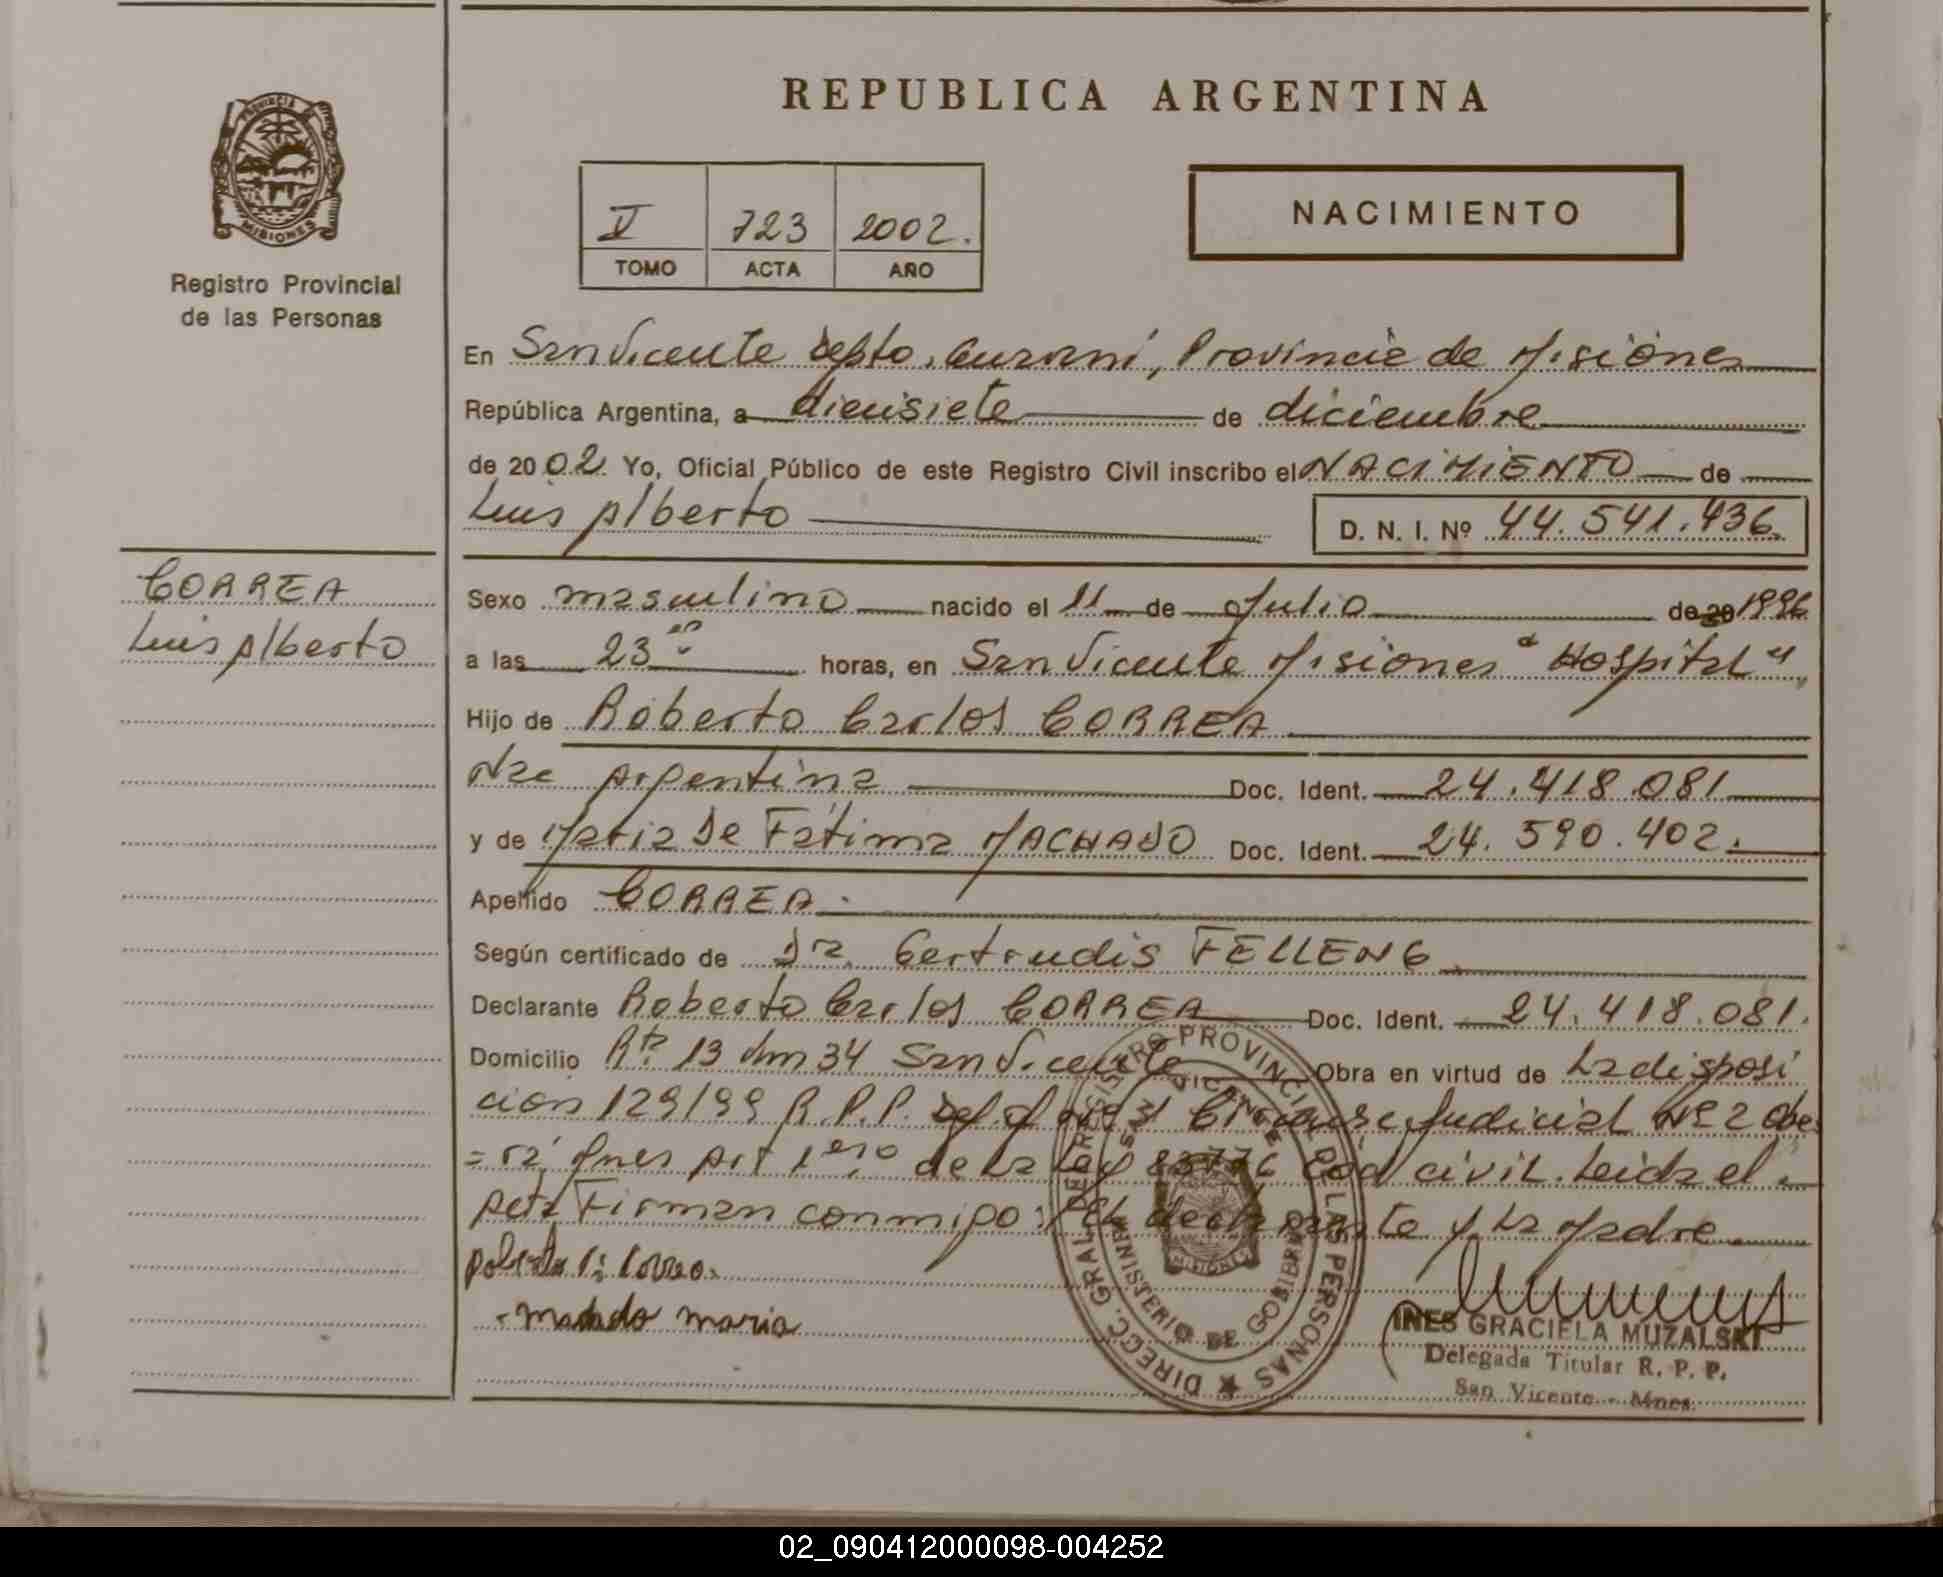 REPUBLICA ARGENTINA
PROVINCIA
MISIONES
Registro Provincial
de las Personas
V 723 2002.
TOMO ACTA AÑO
NACIMIENTO
En San Vicente Depto. Guaraní, Provincia de Misiones
República Argentina, a diecisiete de diciembre
de 2002. Yo, Oficial Público de este Registro Civil inscribo el NACIMIENTO de
Luis Alberto D. N. I. Nº 44.541.436.
CORREA
Luis Alberto
Sexo masculino nacido el 11 de Julio de 20 1996
a las 23 horas, en San Vicente Misiones "Hospital"
Hijo de Roberto Carlos CORREA
Nac Argentina Doc. Ident. 24.418.081
y de Maria De Fatima MACHADO Doc. Ident. 24.590.402.
Apellido CORREA.
Según certificado de Dra. Gertrudis FELLENG
Declarante Roberto Carlos CORREA Doc. Ident. 24.418.081.
Domicilio Rta 13 Km 34 San Vicente Obra en virtud de La disposi
ción 129/99 R.P.P. Judicial Nº 2 Obe
= rá, Mnes Art 1ero de la Ley cod civil. Leida el
Acta Firman conmigo: El declarante y La Madre
Roberto C. Correa.
- Machado maria
DIRECC. GRAL. DE REGISTRO PROVINCIAL DE LAS PERSONAS
SAN VICENTE
MINISTERIO DE GOBIERNO
MISIONES
INES GRACIELA MUZALSKI
Delegada Titular R. P. P.
San Vicente - Mnes.
02_090412000098-004252